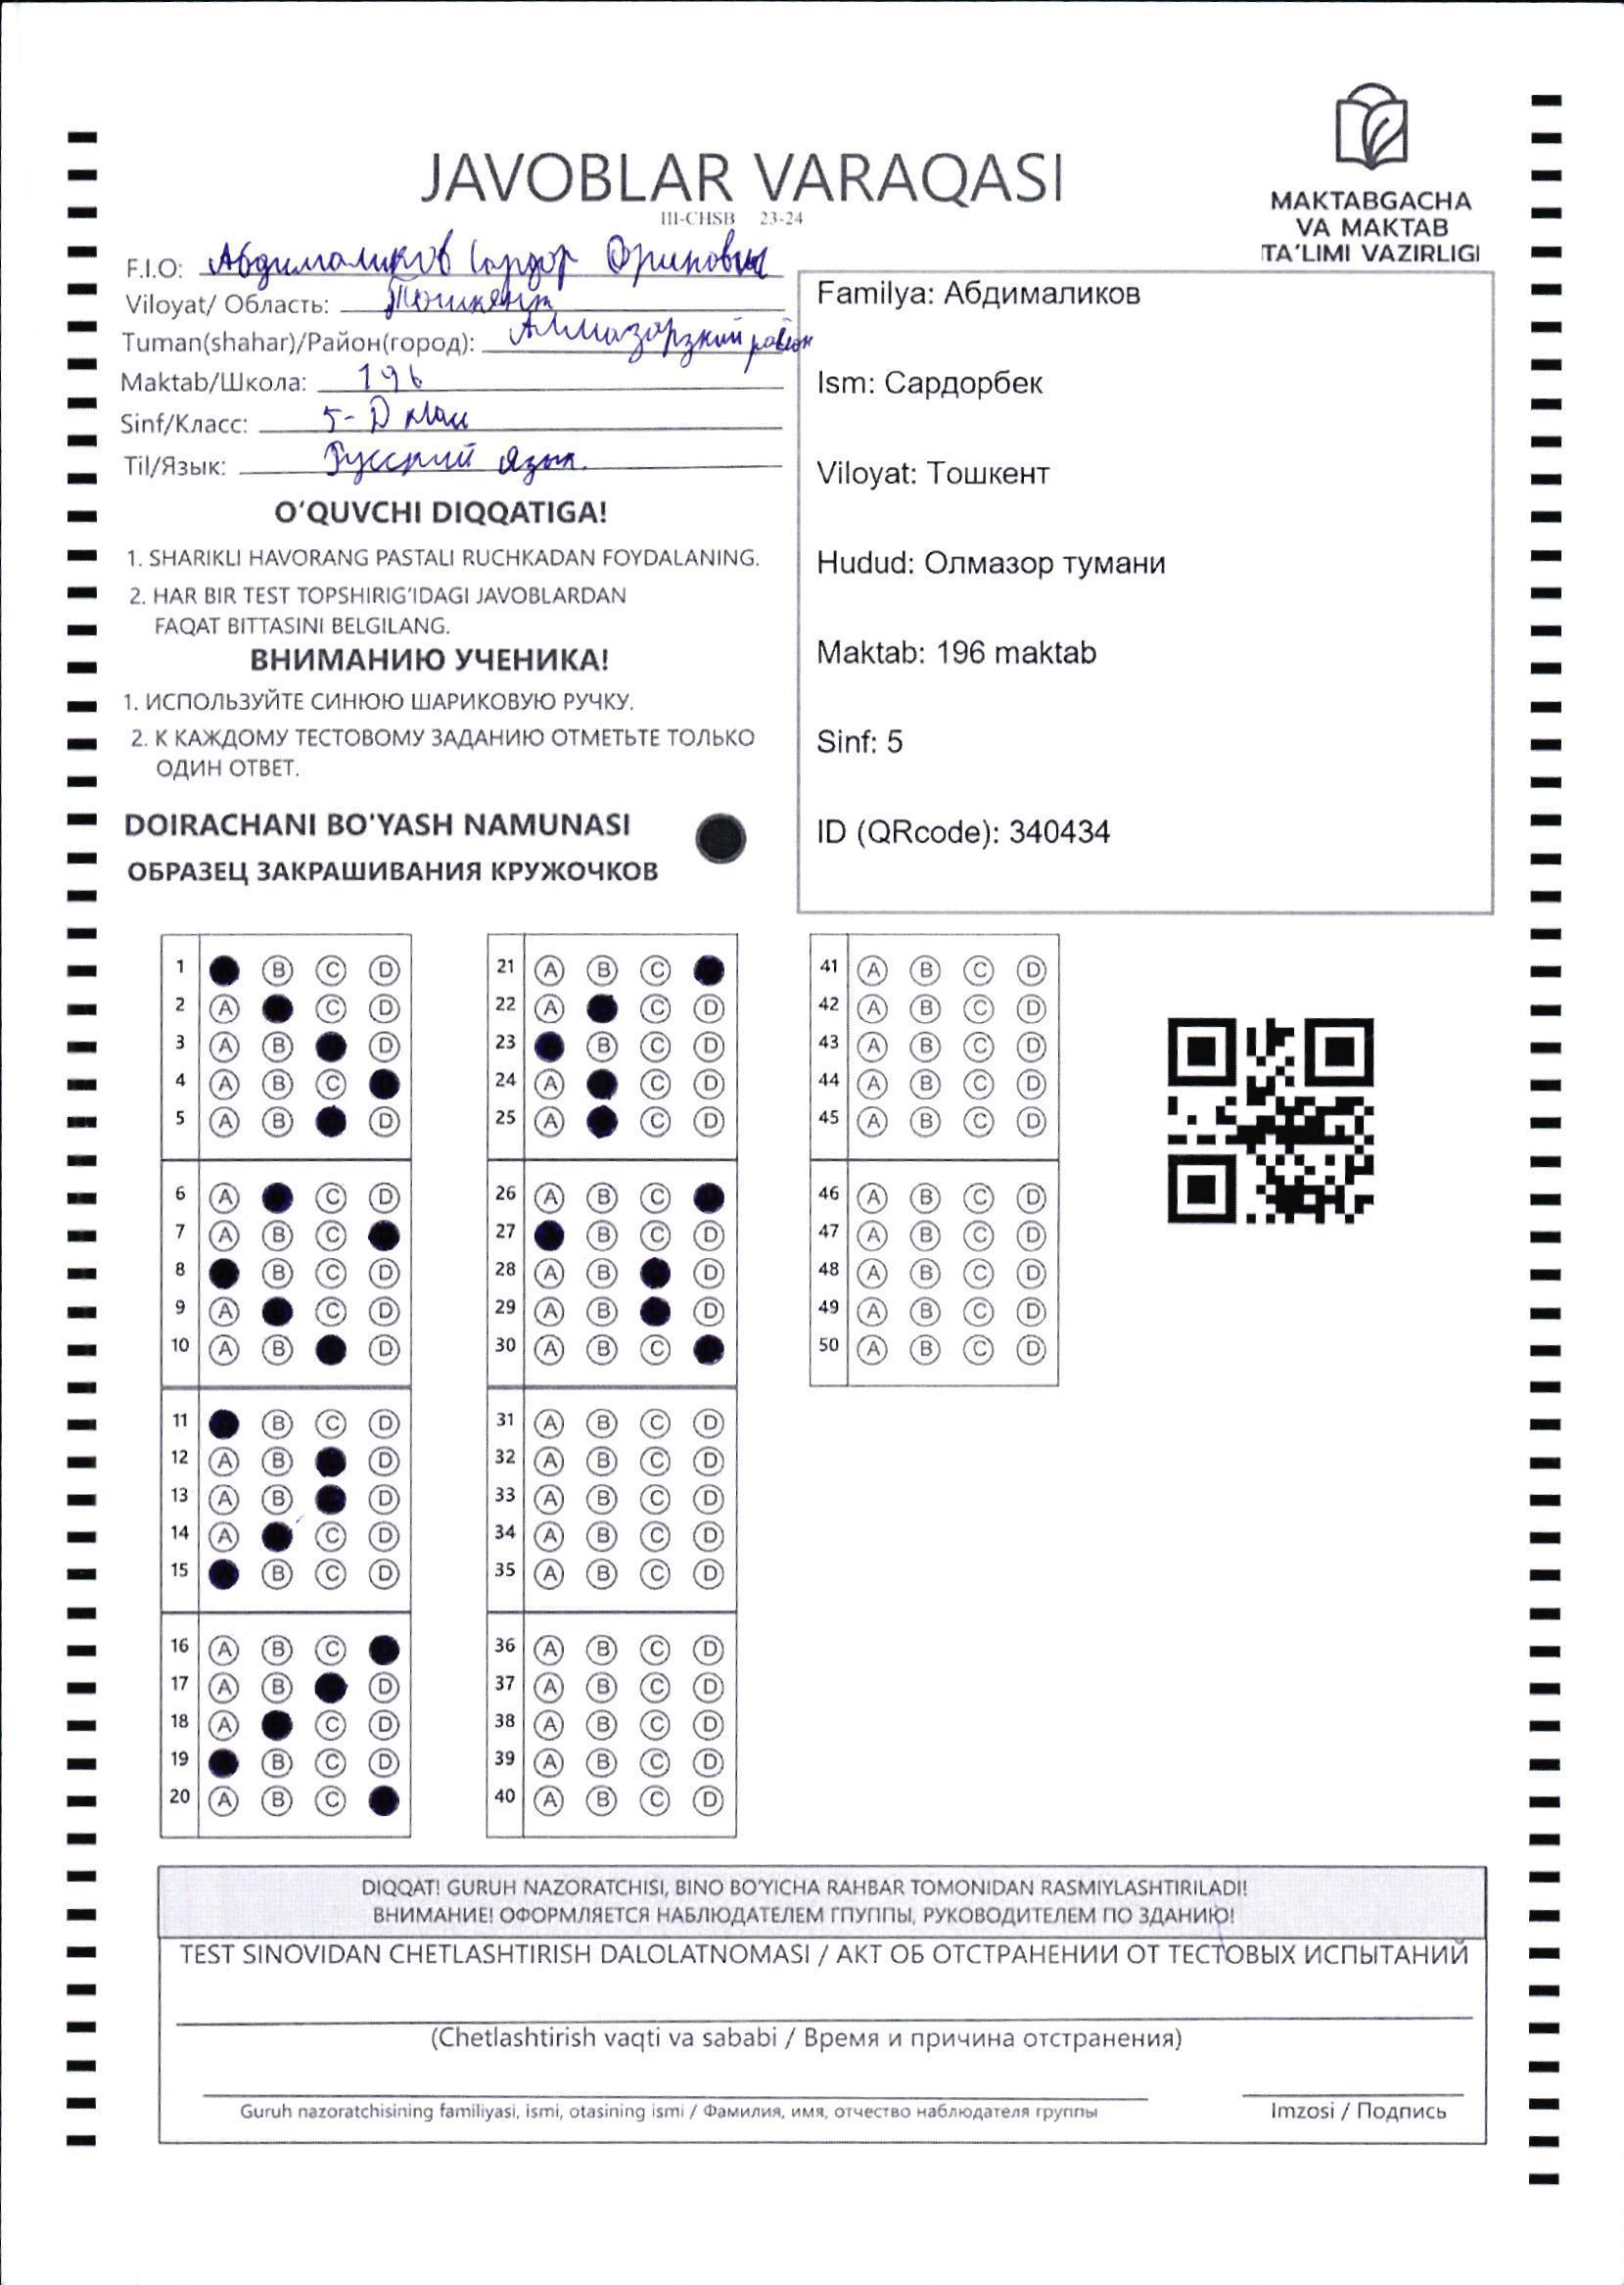 JAVOBLAR VARAQASI
III-CHSB 23-24
MAKTABGACHA
VA MAKTAB
TA'LIMI VAZIRLIGI
F.I.O: Абдималиков Сардор Ориповы
Viloyat/ Область: Тошкент
Tuman(shahar)/Район(город): Алмазорзкий район
Maktab/Школа: 196
Sinf/Класс: 5-D клас
Til/Язык: Русский язык.
O'QUVCHI DIQQATIGA!
1. SHARIKLI HAVORANG PASTALI RUCHKADAN FOYDALANING.
2. HAR BIR TEST TOPSHIRIG'IDAGI JAVOBLARDAN
FAQAT BITTASINI BELGILANG.
ВНИМАНИЮ УЧЕНИКА!
1. ИСПОЛЬЗУЙТЕ СИНЮЮ ШАРИКОВУЮ РУЧКУ.
2. К КАЖДОМУ ТЕСТОВОМУ ЗАДАНИЮ ОТМЕТЬТЕ ТОЛЬКО
ОДИН ОТВЕТ.
DOIRACHANI BO'YASH NAMUNASI
ОБРАЗЕЦ ЗАКРАШИВАНИЯ КРУЖОЧКОВ
Familya: Абдималиков
Ism: Сардорбек
Viloyat: Тошкент
Hudud: Олмазор тумани
Maktab: 196 maktab
Sinf: 5
ID (QRcode): 340434
1 B C D
2 A C D
3 A B D
4 A B C
5 A B D
6 A C D
7 A B C
8 B C D
9 A C D
10 A B D
11 B C D
12 A B D
13 A B D
14 A C D
15 B C D
16 A B C
17 A B D
18 A C D
19 B C D
20 A B C
21 A B C
22 A C D
23 B C D
24 A C D
25 A C D
26 A B C
27 B C D
28 A B D
29 A B D
30 A B C
31 A B C D
32 A B C D
33 A B C D
34 A B C D
35 A B C D
36 A B C D
37 A B C D
38 A B C D
39 A B C D
40 A B C D
41 A B C D
42 A B C D
43 A B C D
44 A B C D
45 A B C D
46 A B C D
47 A B C D
48 A B C D
49 A B C D
50 A B C D
DIQQAT! GURUH NAZORATCHISI, BINO BO'YICHA RAHBAR TOMONIDAN RASMIYLASHTIRILADI!
ВНИМАНИЕ! ОФОРМЛЯЕТСЯ НАБЛЮДАТЕЛЕМ ГПУППЫ, РУКОВОДИТЕЛЕМ ПО ЗДАНИЮ!
TEST SINOVIDAN CHETLASHTIRISH DALOLATNOMASI / АКТ ОБ ОТСТРАНЕНИИ ОТ ТЕСТОВЫХ ИСПЫТАНИЙ
(Chetlashtirish vaqti va sababi / Время и причина отстранения)
Guruh nazoratchisining familiyasi, ismi, otasining ismi / Фамилия, имя, отчество наблюдателя группы
Imzosi / Подпись